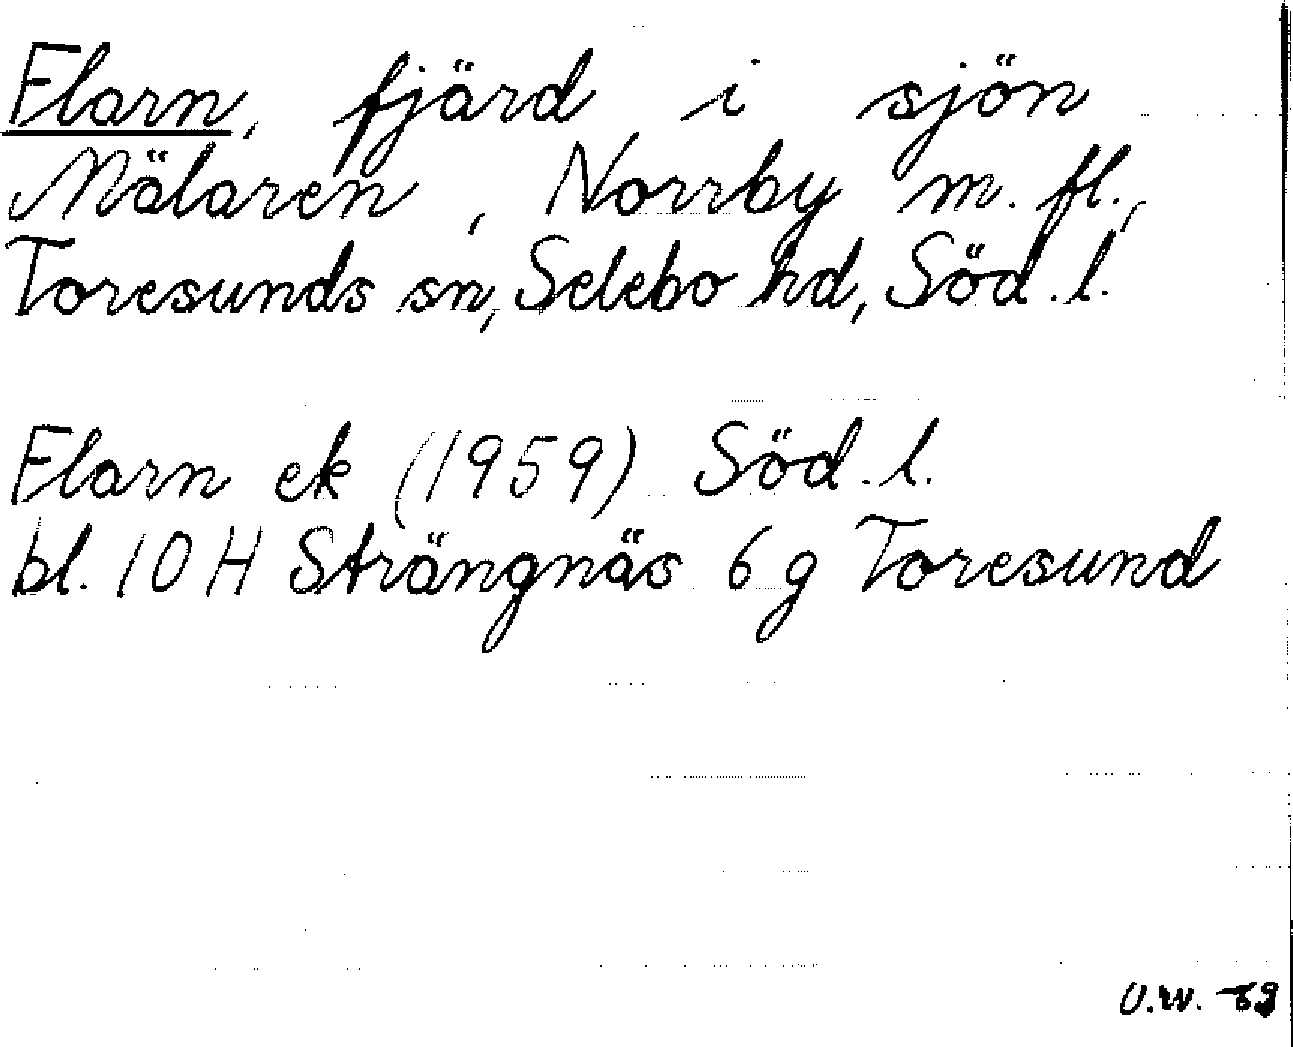 Elarn, fjärd i sjön
Mälaren, Norrby m. fl.,
Toresunds sn, Selebo hd, Söd. l.
Elarn ek (1959) Söd. l.
bl. 10 H Strängnäs 6 g Toresund